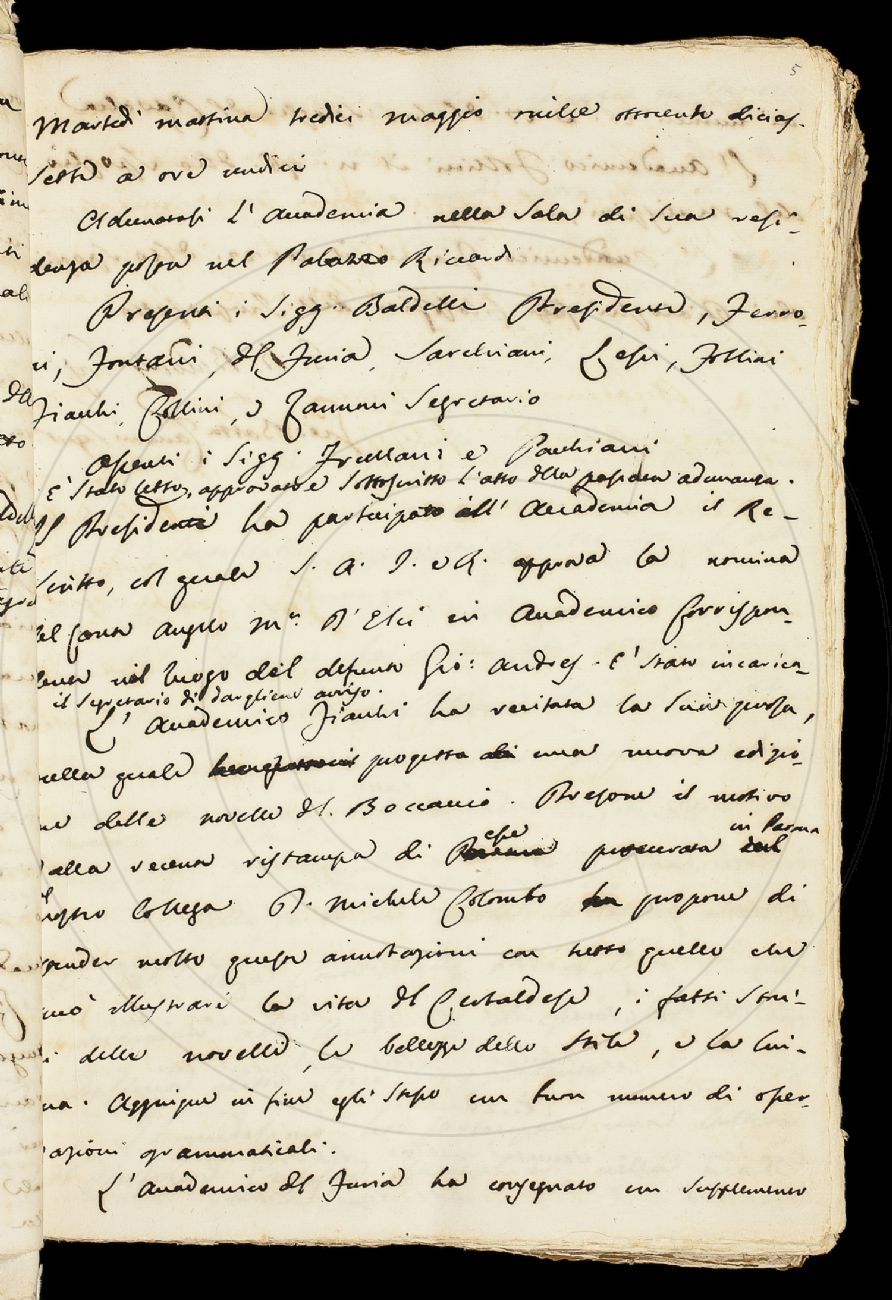 5
Martedì mattina tredici Maggio mille ottocento dicias-
sette a ore undici
Adunatasi l'Accademia nella Sala di Sua resi-
denza posta nel Palazzo Riccardi
Presenti i Sigg. Baldelli Presidente, Ferro-
ni, Fontani, del Furia, Sarchiani, Lessi, Follini
Fiacchi, Collini, e Zannoni Segretario
Assenti i Sigg. Frullani e Pacchiani
E' stato letto, approvato e sottoscritto l'atto della passata adunanza.
Il Presidente ha partecipato all'Accademia il Re-
scritto, col quale S. A. I. e R. approva la nomina
del Conte Angelo M.ª D'Elci in Accademico Corrispon-
dente nel luogo del defunto Gio: Andres. E' stato incarica-
il Segretario di dargliene avviso.
L'Accademico Fiacchi ha recitata la Sua prosa,
nella quale progetta una nuova edizio-
ne delle novelle del Boccaccio. Presone il motivo
dalla recente ristampa di esse procurata in Parma
dal
nostro Collega D. Michele Colombo propone di
estender molto queste annotazioni con tutto quello che
può illustrare la vita del Certaldese, i fatti stori-
ci delle novelle, le bellezze dello stile, e la lin-
gua. Aggiugne in fine egli stesso un buon numero di osser-
vazioni grammaticali.
L'Accademico del Furia ha consegnato un supplemento